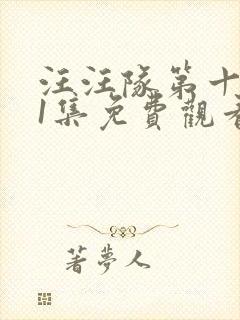 汪汪隊第十
1集免費觀看
著夢人